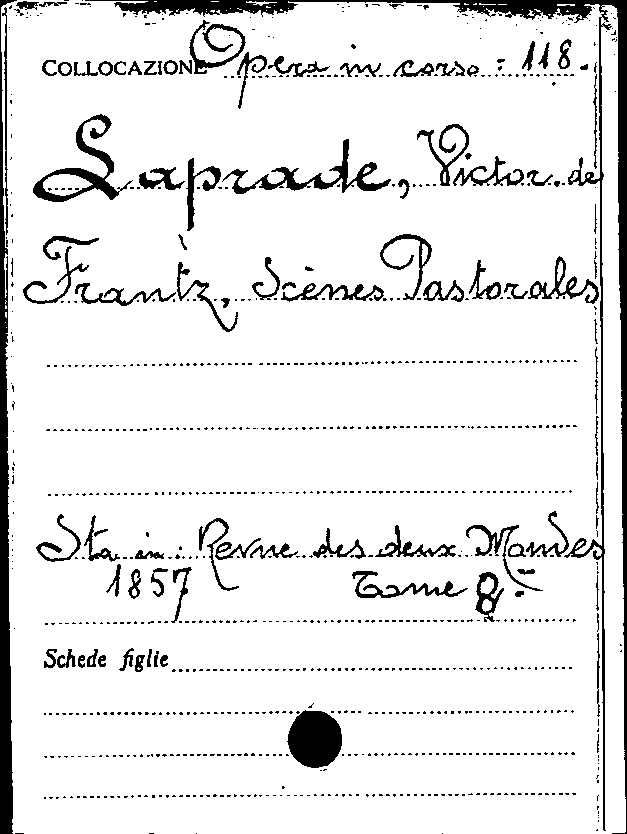 COLLOCAZIONE Opera in corso = 118.
Laprade, Victor. de
Frantz, Scènes Pastorales
Sta in: Revue des deux Mondes
1857 Tome 8.
Schede figlie